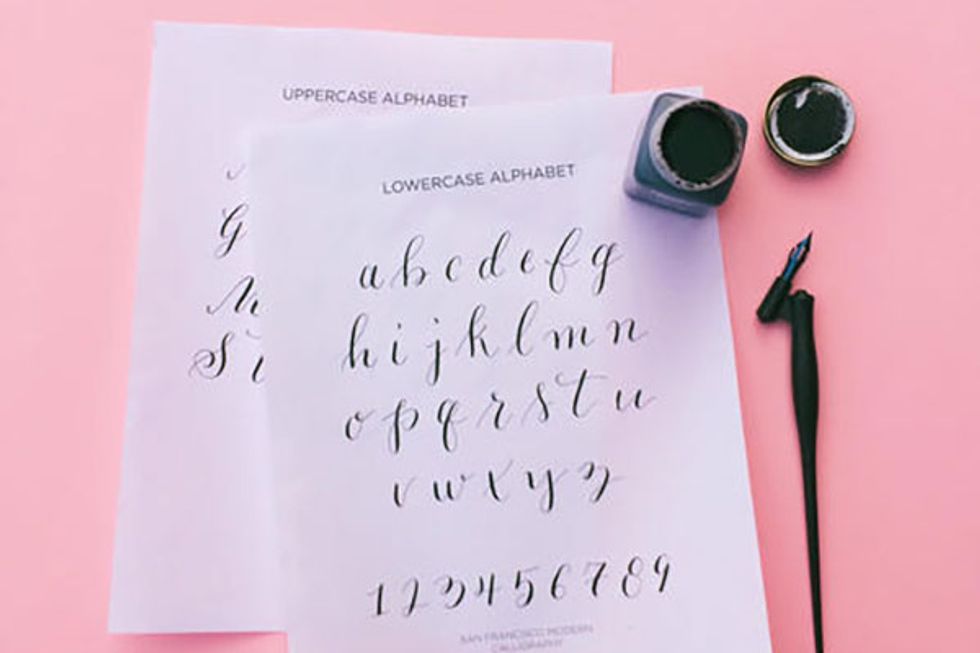 UPPERCASE ALPHABET
G
M
S
LOWERCASE ALPHABET
a b c d e f g
h i j k l m n
o p q r s t u
v w x y z
1 2 3 4 5 6 7 8 9
SAN FRANCISCO MODERN
CALLIGRAPHY